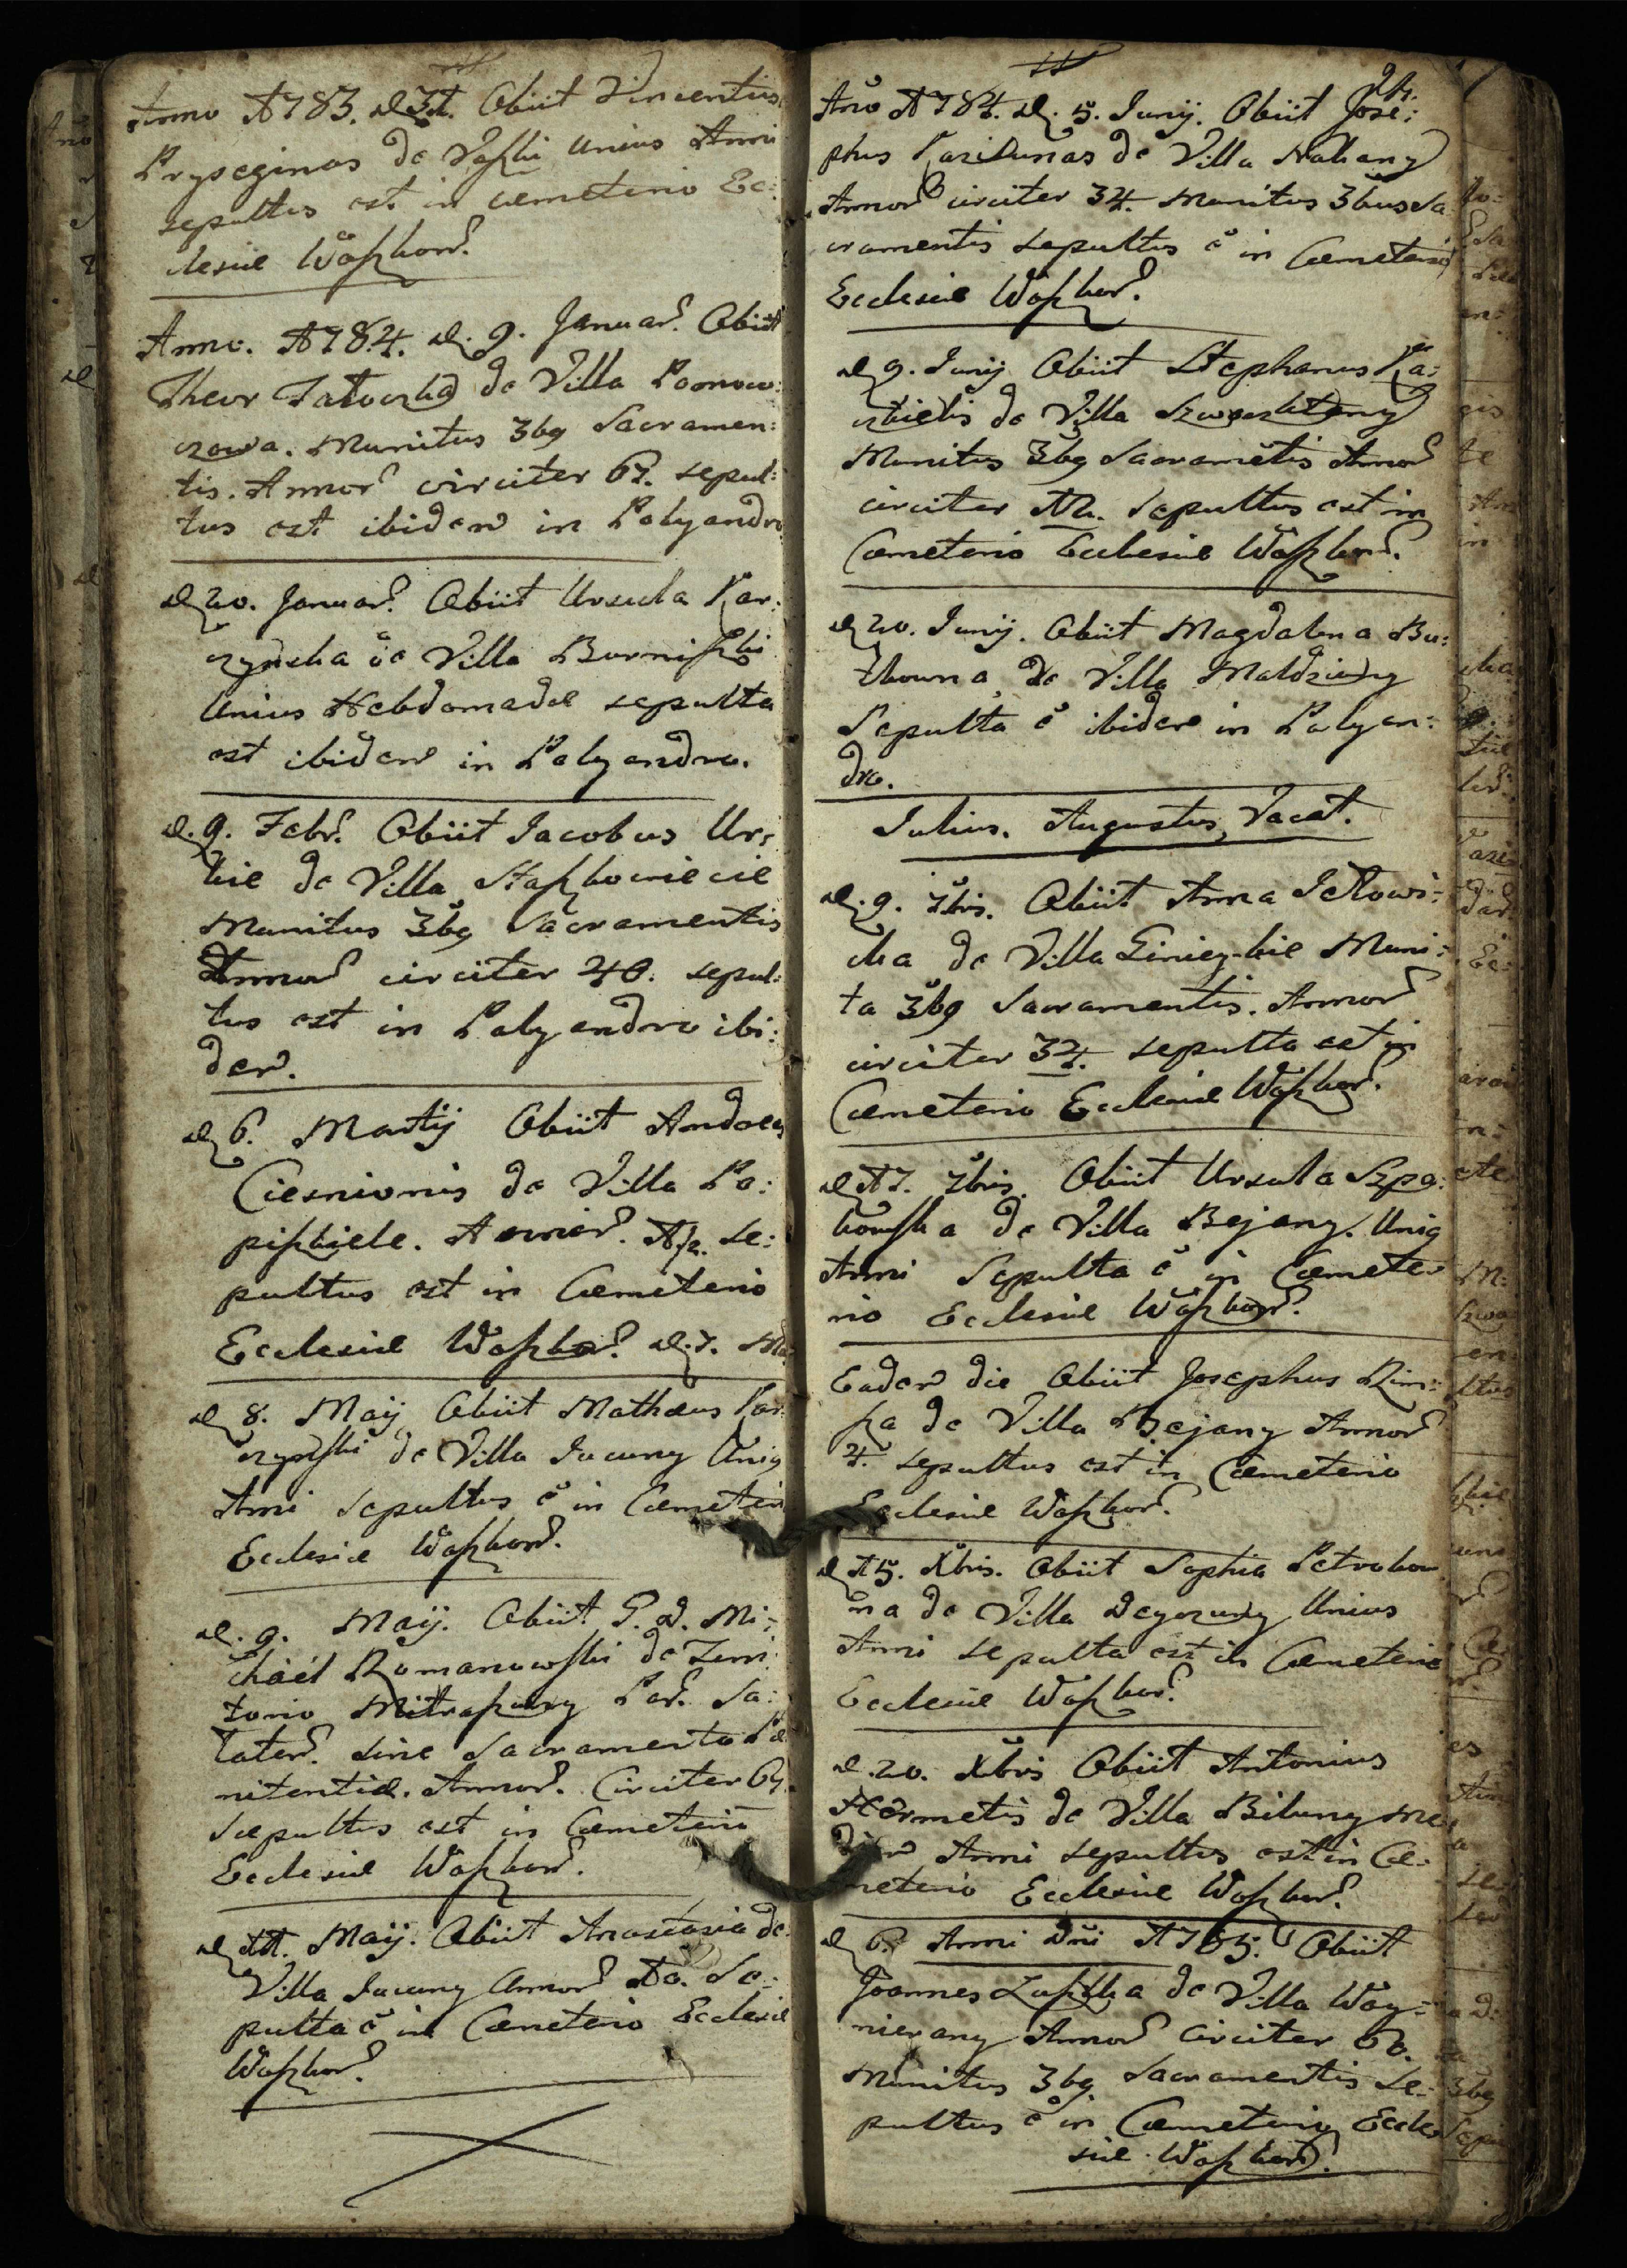 Anno 1783. d. 31. Obiit Vincentius
de Vaszki unius Anni
sepultus est in cæmeterio Ec:
clesiæ Waszkon.
Anno. 1784. d. 9. Januar. Obiit
de Villa Pomow:
czowa. Munitus 3bg Sacramen:
tis. Annor circiter 67. sepul:
tus est ibidem in Polyandro
d 20. Januar. Obiit Ursula Kar:
czynska de Villa Burniszki
Unius Hebdomadæ sepulta
est ibidem in Polyandro.
d. 9. Febr. Obiit Iacobus Ur:
kie de Villa
Munitus 3bg Sacramentis
Annor circiter 40. sepul:
tus est in Polyandro ibi:
dem.
d 6. Martij Obiit Andreas
Ciesnionis de Villa Pa:
piszkiele. Annor. 1/2. Se:
pultus est in Cæmeterio
Ecclesiæ Waszkon. d. 7.
d 8. Maij Obiit Mathæus Kar
czynski de Villa Jucuny Unig
Anni Sepultus ē in Cæmeterio
Ecclesiæ Waszkon.
d. 9. Maij. Obiit G. D. Mi:
chaël Romanowski de Terri
torio Par. Sa:
laten. sine Sacramento Pæ
nitentiæ. Annor. Circiter
Sæpultus est in Cæmeterio
Ecclesiæ Waszkon.
d 11. Maij. Obiit Anastasia de
Villa Jucuny Annor 10. Se:
pulta ē in Cæmeterio Ecclesiæ
Waszkon.
24.
Año 1784. d. 5. Junij. Obiit Jose:
phus de Villa Nakany
Annor circiter 34. Munitus 3bus Sa
cramentis sepultus ē in Cæmeterio
Ecclesiæ Waszkon.
d 9. Junij Obiit Stephanus Ka:
de Villa
Munitus 3bg Sacramētis Annor
circiter Sepultus est in
Cæmeterio Ecclesiæ Waszkon.
d 20. Junij. Obiit Magdalena Bu:
tkowna de Villa Maldziuny
Sepulta ē ibidem in Polyan:
dro.
Julius. Augustus, Vacat.
d. 9. 7bris. Obiit Anna
cka de Villa Giniey-kie Muni:
ta 3bg Sacramentis. Annor
circiter 34. sepulta est in
Cæmeterio Ecclesiæ Waszkon.
d 17. 7bris. Obiit Ursula Szpa:
kowska de Villa Bejany. Unig
Anni Sepulta ē in Cæmete
rio Ecclesiæ Waszkon.
Eadem die Obiit Josephus Rim:
sza de Villa Bejany Annor
4. sepultus est in Cæmeterio
Ecclesiæ Waszkon.
d 15. Xbris. Obiit Sophia Petrokow
na de Villa Degeruny Unius
Anni sepulta est in Cæmeterio
Ecclesiæ Waszkon.
d. 20. Xbris Obiit Antonius
Hermetis de Villa Bikuny Me
dium Anni sepultus est in Cæ:
meterio Ecclesiæ Waszkon.
d 6. Anni Dñi 1785. Obiit
Joannes de Villa Way:
nierany Annor circiter 60.
Munitus 3bg. Sacramentis Se:
pultus ē in Cæmeterio Eccle
siæ Waszkon.